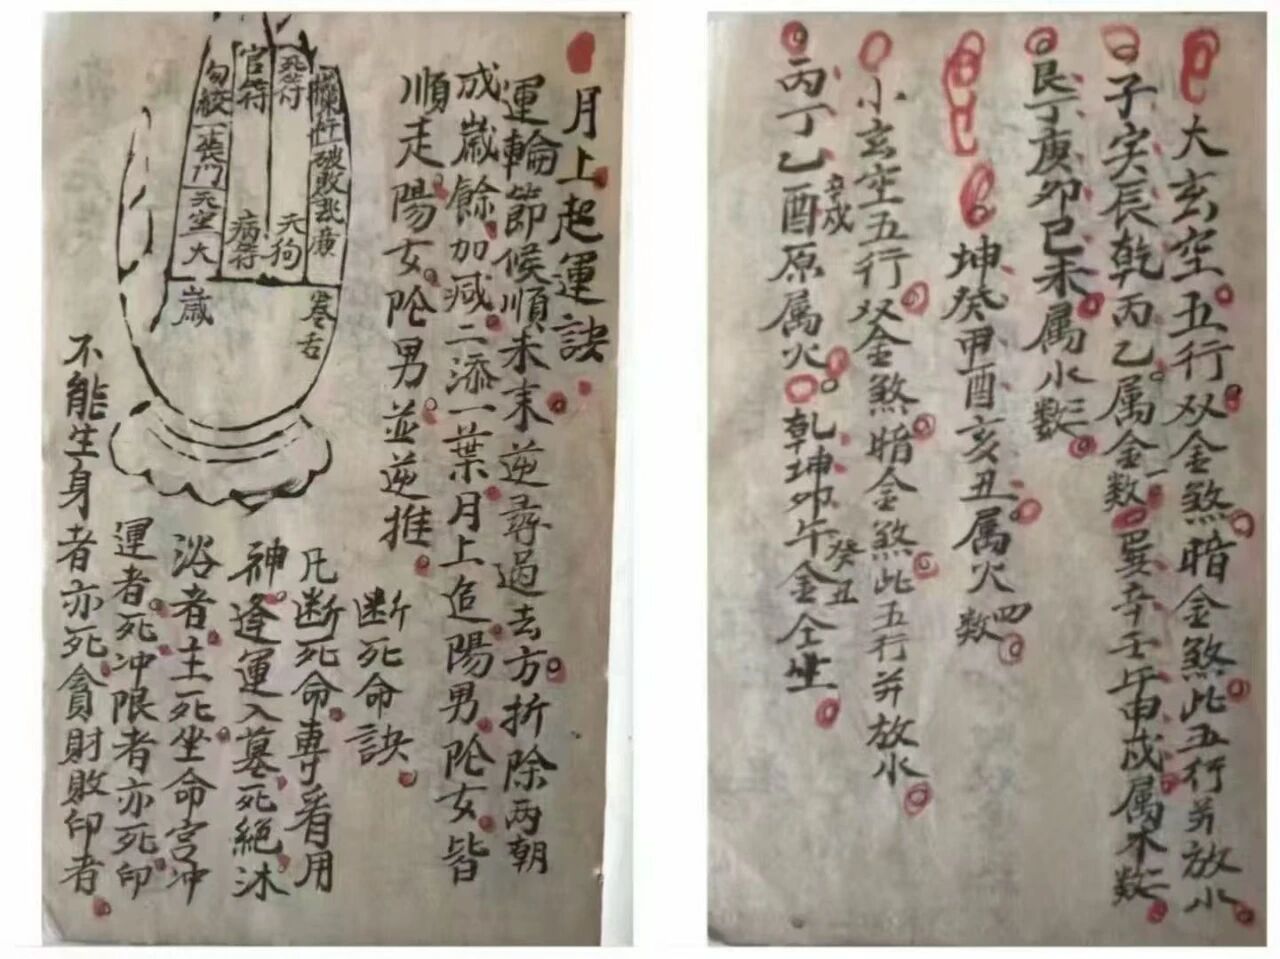 大玄空五行双金煞暗金煞此五行并放水
子寅辰乾丙乙属金数一巽辛壬午申戌属木数二
艮丁庚卯巳未属水数三
坤癸甲酉亥丑属火数四
小玄空五行双金煞暗金煞此五行并放水
丙丁乙酉原属火乾坤卯午金仝坐
辛戌
癸丑
月上起運訣
運輪節候順未末逆尋過去方折除两朝
成歲餘加减二添一葉月上造陽男阴女皆
順走陽女阴男並逆推
断死命訣
凡断死命專看用
神逢運入墓死絕沐
浴者土死坐命宫冲
運者死冲限者亦死印
不能生身者亦死貪財敗印者
官符
死符
勾絞
喪門
天空
大
歲
病符
天狗
欄杆
破敗
卷舌